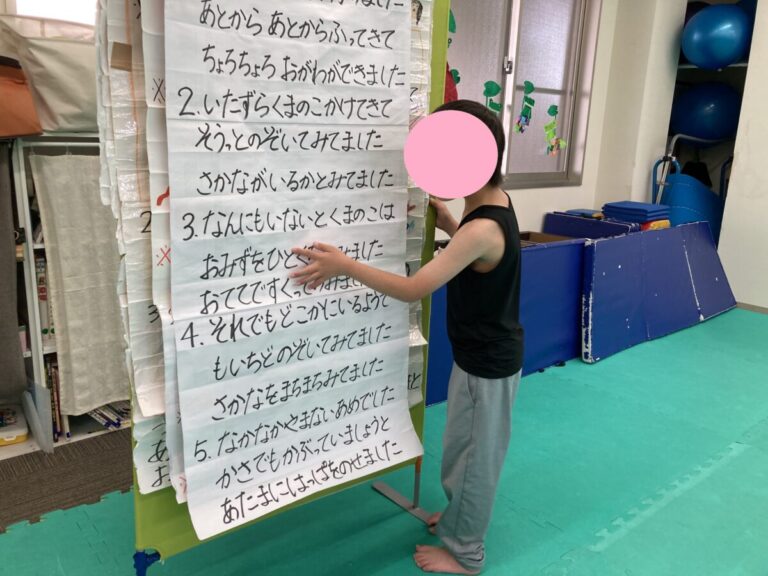 あとから あとからふってきて
ちょろちょろ おがわができました
2. いたずらくまのこかけてきて
そうっとのぞいてみてました
さかながいるかとみてました
3. なんにもいないとくまのこは
おみずをひとくみました
おててですくってみました
4. それでもどこかにいるようで
もいちどのぞいてみてました
さかなをまちまちみてました
5. なかなかやまないあめでした
かさでもかぶっていましょうと
あたまにはっぱをのせました